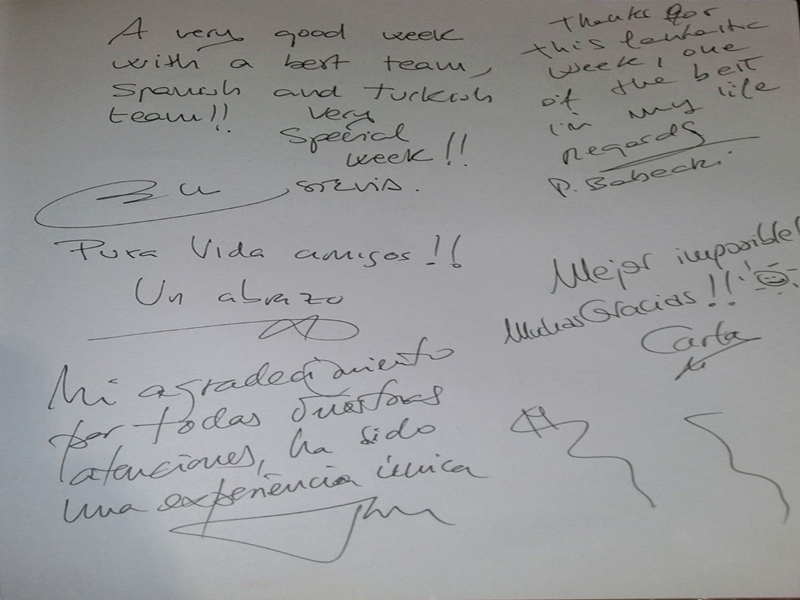 A very good week
with a best team,
Spanish and Turkish
team!! Very
Special
week!!
Pura Vida amigos!!
Un abrazo
Mi agradecimiento
por todas vuestras
atenciones, ha sido
una experiencia única
Thanks for
this fantastic
week, one
of the best
in my life
Regards
P. Babecki.
Mejor imposible!
Muchas Gracias!!
Carla